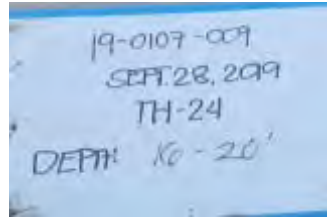 19-0107-009
SEPT.28, 2019
TH-24
DEPTH: 16-20'